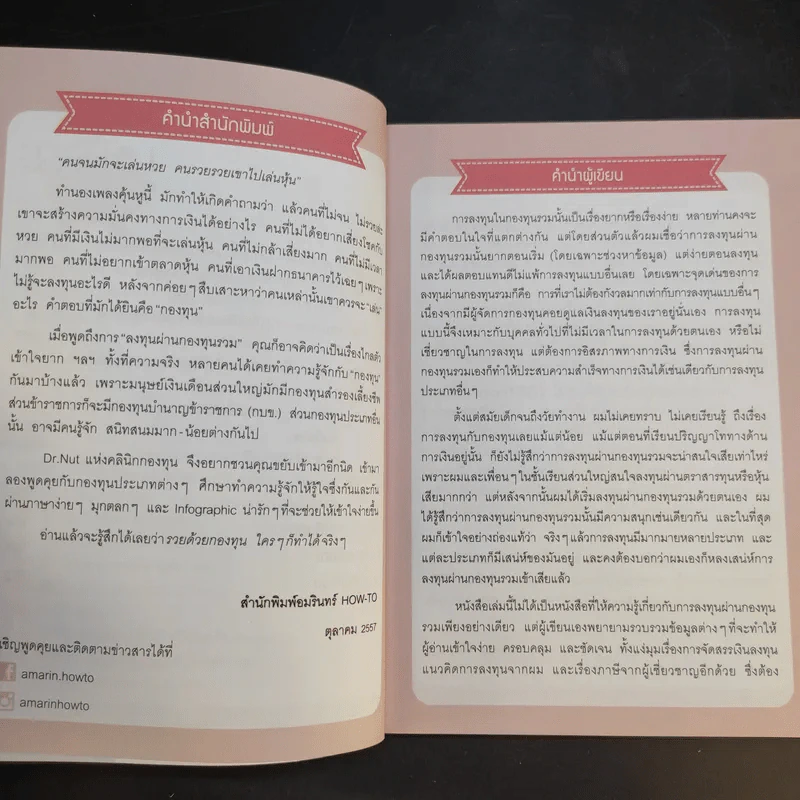 คำนำสำนักพิมพ์
"คนจนมักจะเล่นหวย คนรวยรวยเขาไปเล่นหุ้น"
ทำนองเพลงคุ้นหูนี้ มักทำให้เกิดคำถามว่า แล้วคนที่ไม่จน ไม่รวยล่ะ
เขาจะสร้างความมั่นคงทางการเงินได้อย่างไร คนที่ไม่ได้อยากเสี่ยงโชคกับ
หวย คนที่มีเงินไม่มากพอที่จะเล่นหุ้น คนที่ไม่กล้าเสี่ยงมาก คนที่ไม่มีเวลา
มากพอ คนที่ไม่อยากเข้าตลาดหุ้น คนที่เอาเงินฝากธนาคารไว้เฉยๆ เพราะ
ไม่รู้จะลงทุนอะไรดี หลังจากค่อยๆ สืบเสาะหาว่าคนเหล่านั้นเขาควรจะ "เล่น"
อะไร คำตอบที่มักได้ยินคือ "กองทุน"
เมื่อพูดถึงการ "ลงทุนผ่านกองทุนรวม" คุณก็อาจคิดว่าเป็นเรื่องไกลตัว
เข้าใจยาก ฯลฯ ทั้งที่ความจริง หลายคนได้เคยทำความรู้จักกับ "กองทุน"
กันมาบ้างแล้ว เพราะมนุษย์เงินเดือนส่วนใหญ่มักมีกองทุนสำรองเลี้ยงชีพ
ส่วนข้าราชการก็จะมีกองทุนบำนาญข้าราชการ (กบข.) ส่วนกองทุนประเภทอื่น
นั้น อาจมีคนรู้จัก สนิทสนมมาก - น้อยต่างกันไป
Dr.Nut แห่งคลินิกกองทุน จึงอยากชวนคุณขยับเข้ามาอีกนิด เข้ามา
ลองพูดคุยกับกองทุนประเภทต่างๆ ศึกษาทำความรู้จักให้รู้ใจซึ่งกันและกัน
ผ่านภาษาง่ายๆ มุกตลกๆ และ Infographic น่ารักๆ ที่จะช่วยให้เข้าใจง่ายขึ้น
อ่านแล้วจะรู้สึกได้เลยว่า รวยด้วยกองทุน ใครๆ ก็ทำได้ จริงๆ
สำนักพิมพ์อมรินทร์ HOW-TO
ตุลาคม 2557
เชิญพูดคุยและติดตามข่าวสารได้ที่
amarin.howto
amarinhowto
คำนำผู้เขียน
การลงทุนในกองทุนรวมนั้นเป็นเรื่องยากหรือเรื่องง่าย หลายท่านคงจะ
มีคำตอบในใจที่แตกต่างกัน แต่โดยส่วนตัวแล้วผมเชื่อว่าการลงทุนผ่าน
กองทุนรวมนั้นยากตอนเริ่ม (โดยเฉพาะช่วงหาข้อมูล) แต่ง่ายตอนลงทุน
และได้ผลตอบแทนดีไม่แพ้การลงทุนแบบอื่นเลย โดยเฉพาะจุดเด่นของการ
ลงทุนผ่านกองทุนรวมก็คือ การที่เราไม่ต้องกังวลมากเท่ากับการลงทุนแบบอื่นๆ
เนื่องจากมีผู้จัดการกองทุนคอยดูแลเงินลงทุนของเราอยู่นั่นเอง การลงทุน
แบบนี้จึงเหมาะกับบุคคลทั่วไปที่ไม่มีเวลาในการลงทุนด้วยตนเอง หรือไม่
เชี่ยวชาญในการลงทุน แต่ต้องการอิสรภาพทางการเงิน ซึ่งการลงทุนผ่าน
กองทุนรวมเองก็ทำให้ประสบความสำเร็จทางการเงินได้เช่นเดียวกับการลงทุน
ประเภทอื่นๆ
ตั้งแต่สมัยเด็กจนถึงวัยทำงาน ผมไม่เคยทราบ ไม่เคยเรียนรู้ ถึงเรื่อง
การลงทุนกับกองทุนเลยแม้แต่น้อย แม้แต่ตอนที่เรียนปริญญาโททางด้าน
การเงินอยู่นั้น ก็ยังไม่รู้สึกว่าการลงทุนผ่านกองทุนรวมจะน่าสนใจเสียเท่าไหร่
เพราะผมและเพื่อนๆ ในชั้นเรียนส่วนใหญ่สนใจลงทุนผ่านตราสารทุนหรือหุ้น
เสียมากกว่า แต่หลังจากนั้นผมได้เริ่มลงทุนผ่านกองทุนรวมด้วยตนเอง ผม
ได้รู้สึกว่าการลงทุนผ่านกองทุนรวมนั้นมีความสนุกเช่นเดียวกัน และในที่สุด
ผมก็เข้าใจอย่างถ่องแท้ว่า จริงๆ แล้วการลงทุนมีมากมายหลายประเภท และ
แต่ละประเภทก็มีเสน่ห์ของมันอยู่ และคงต้องบอกว่าผมเองก็หลงเสน่ห์การ
ลงทุนผ่านกองทุนรวมเข้าเสียแล้ว
หนังสือเล่มนี้ไม่ได้เป็นหนังสือที่ให้ความรู้เกี่ยวกับการลงทุนผ่านกองทุน
รวมเพียงอย่างเดียว แต่ผู้เขียนเองพยายามรวบรวมข้อมูลต่างๆ ที่จะทำให้
ผู้อ่านเข้าใจง่าย ครอบคลุม และชัดเจน ทั้งแง่มุมเรื่องการจัดสรรเงินลงทุน
แนวคิดการลงทุนจากผม และเรื่องภาษีจากผู้เชี่ยวชาญอีกด้วย ซึ่งต้อง